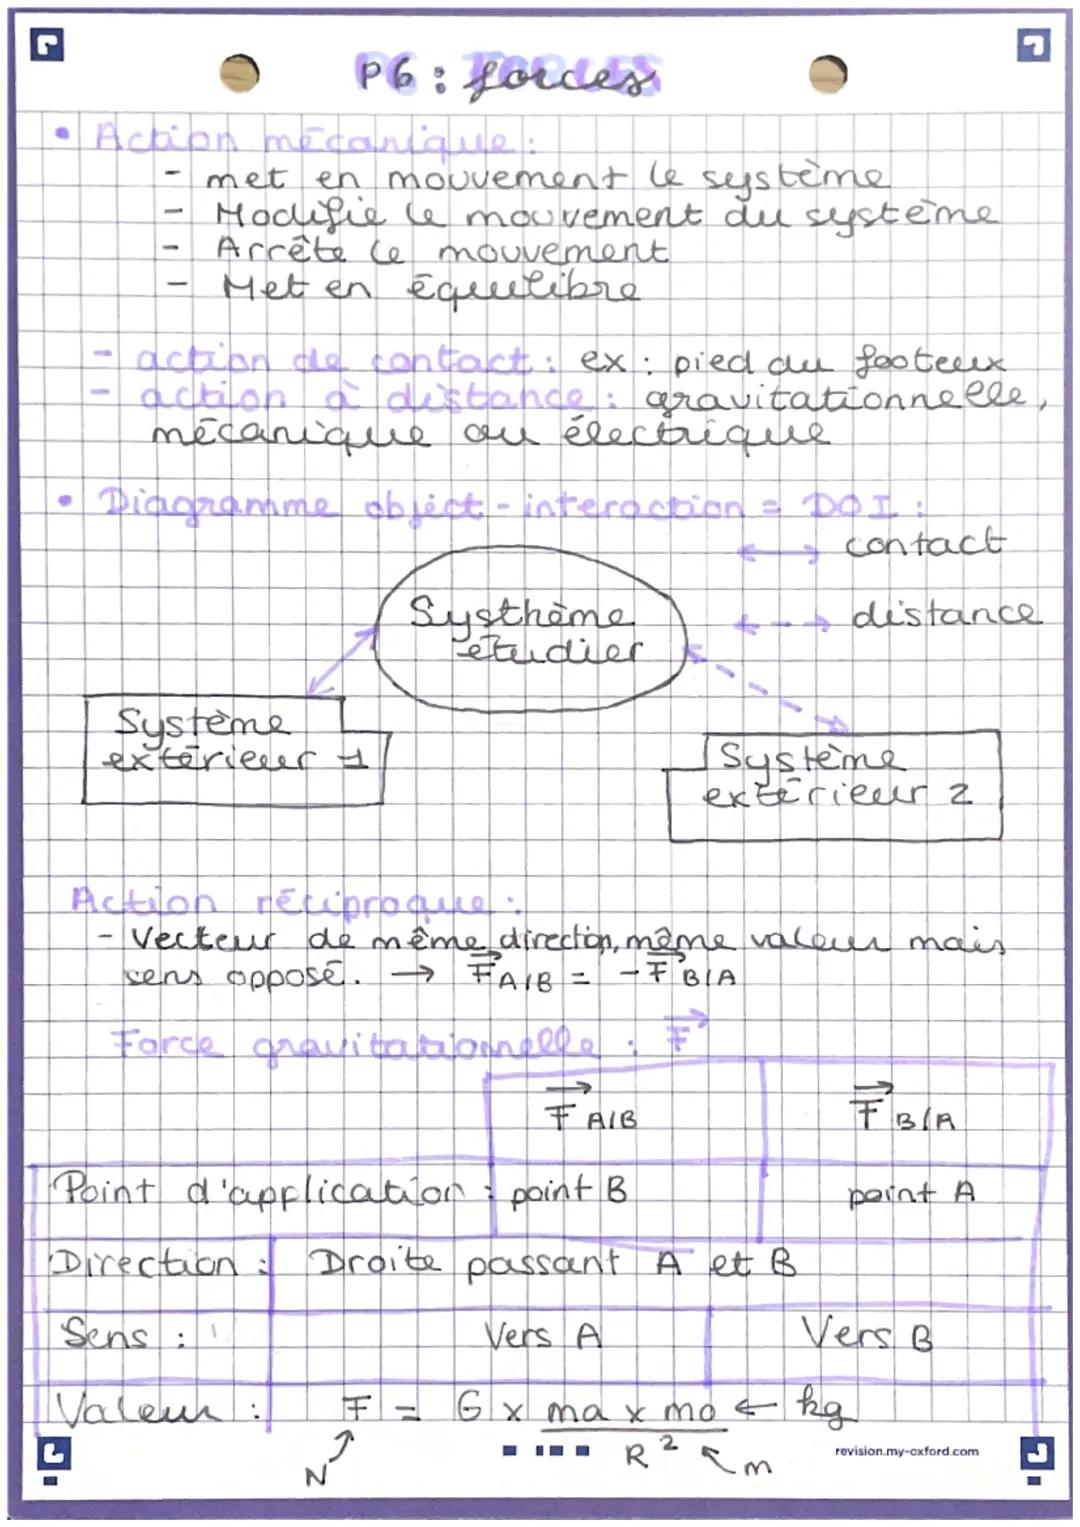 P6 : forces
• Action mécanique :
- met en mouvement le système
- Modifie le mouvement du système
- Arrête le mouvement
- Met en équilibre
- action de contact : ex : pied du footeux
- action à distance : gravitationnelle,
mécanique ou électrique
• Diagramme object - interaction = DOI :
contact
Systhème
étudier
distance
Système
extérieur 1
Système
extérieur 2
Action réciproque :
- Vecteur de même direction, même valeur mais
sens opposé. → F⃗ A/B = -F⃗ B/A
Force gravitationnelle : F⃗
F⃗ A/B F⃗ B/A
Point d'application : point B point A
Direction : Droite passant A et B
Sens : Vers A Vers B
Valeur : F = G x ma x mb ← kg
N R² m
revision.my-oxford.com